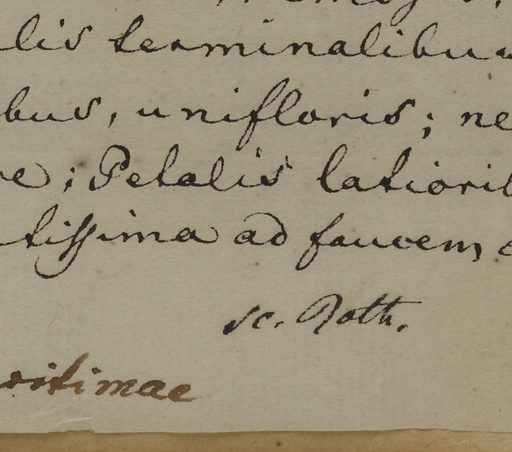 lis terminalibus
bus, unifloris; ne
re; Petalis latiorib
tissima ad faucem,
sc. Roth.
ritimae